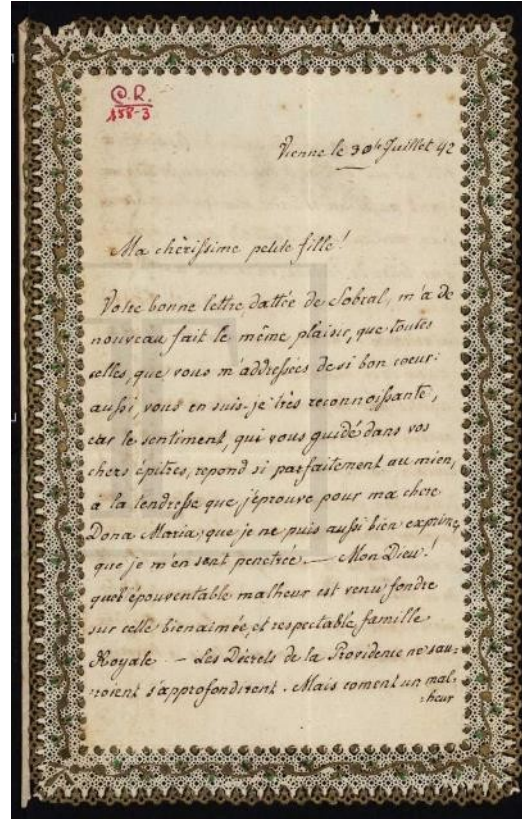 C.R.
158-3
Vienne le 30le Juillet 42
Ma chèrissime petite fille!
Votre bonne lettre dattée de Sobral, m'a de
nouveau fait le même plaisir, que toutes
celles, que vous m'addressées de si bon coeur:
aussi, vous en suis-je très reconnoissante,
car le sentiment, qui vous guidé dans vos
chers épitres, repond si parfaitement au mien,
a la tendresse que j'éprouve pour ma chere
Dona Maria, que je ne puis aussi bien exprimer,
que je m'en sent penetrée. — Mon Dieu!
quel épouventable malheur est venu fondre
sur celle bienaimée, et respectable famille
Royale — Les Décrets de la Providence ne sau=
roient s'approfondirent. Mais coment un mal=
=heur